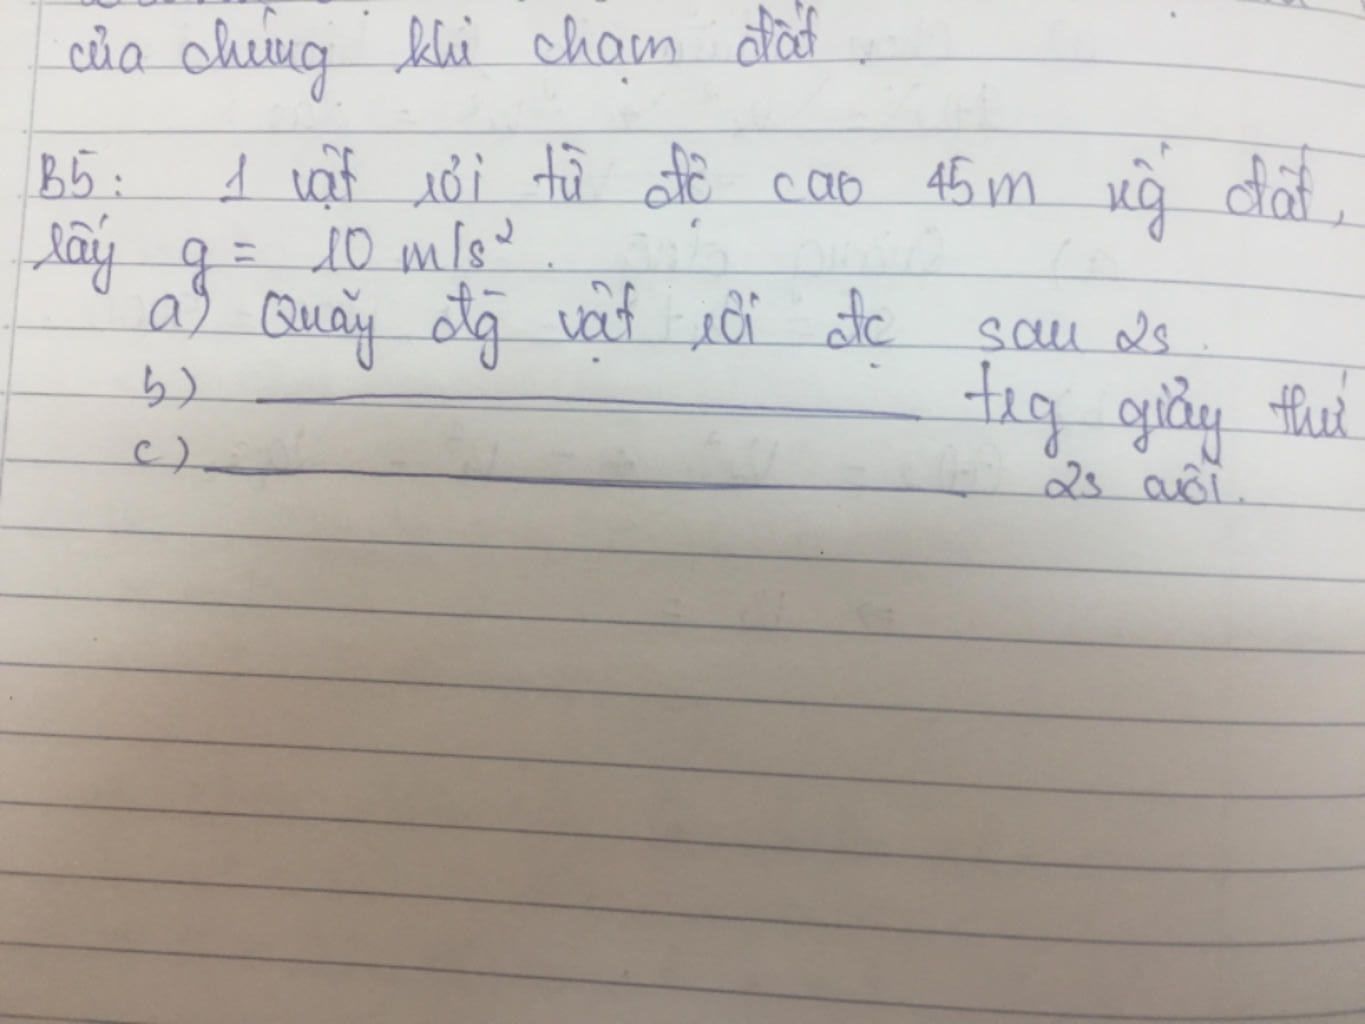 của chúng khi chạm đất.
B5: 1 vật rơi từ độ cao 45m xg đất,
lấy g = 10 m/s².
a) Quãg đg vật rơi đc sau 2s.
b) trg giây thứ
c) 2s cuối.